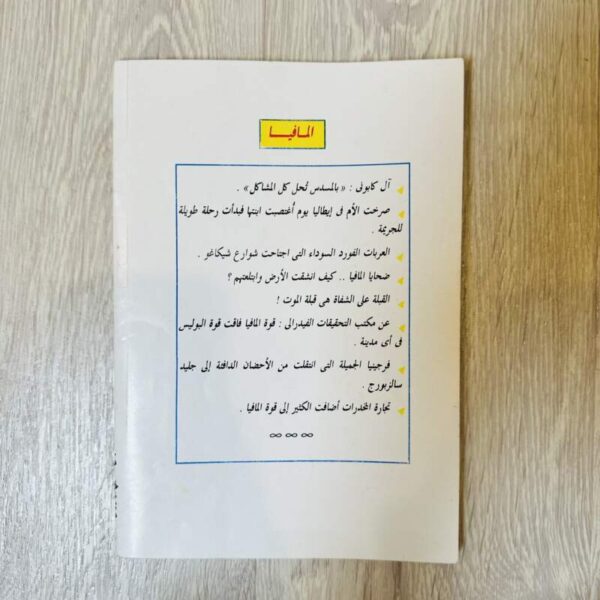 المافيـــا
آل كابونى : « بالمسدس تُحل كل المشاكل » .
صرخت الأم فى إيطاليا يوم أُغتصبت ابنتها فبدأت رحلة طويلة
للجريمة .
العربات الفورد السوداء التى اجتاحت شوارع شيكاغو .
ضحايا المافيا .. كيف انشقت الأرض وابتلعتهم ؟
القبلة على الشفاة هى قبلة الموت !
عن مكتب التحقيقات الفيدرالى : قوة المافيا فاقت قوة البوليس
فى أى مدينة .
فرجينيا الجميلة التى انتقلت من الأحضان الدافئة إلى جليد
سالزبورج .
تجارة المخدرات أضافت الكثير إلى قوة المافيا .